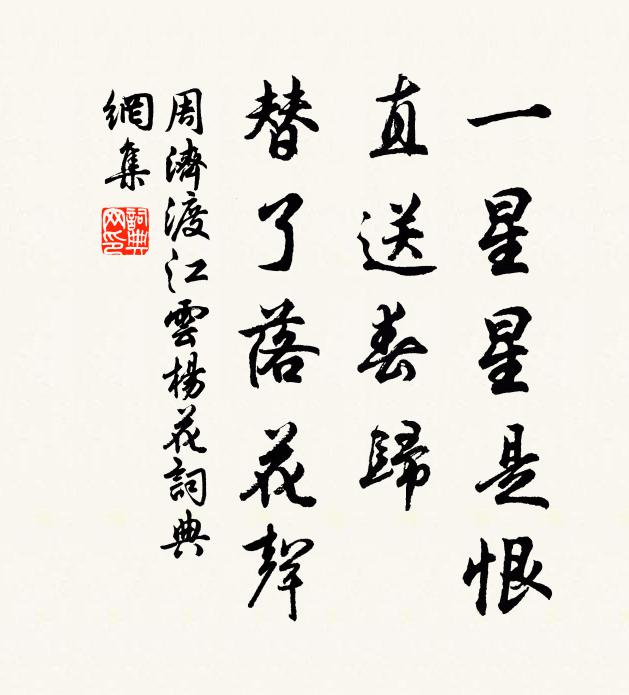 一星星是恨
直送春歸
替了落花聲
周濟渡江雲楊花詞典
網集
詞典
网印